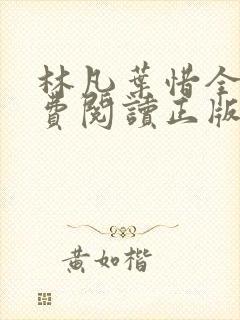 林凡葉惜全
費閱讀正版
黃如楷